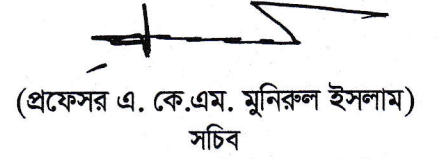 (প্রফেসর এ. কে.এম. মুনিরুল ইসলাম)
সচিব